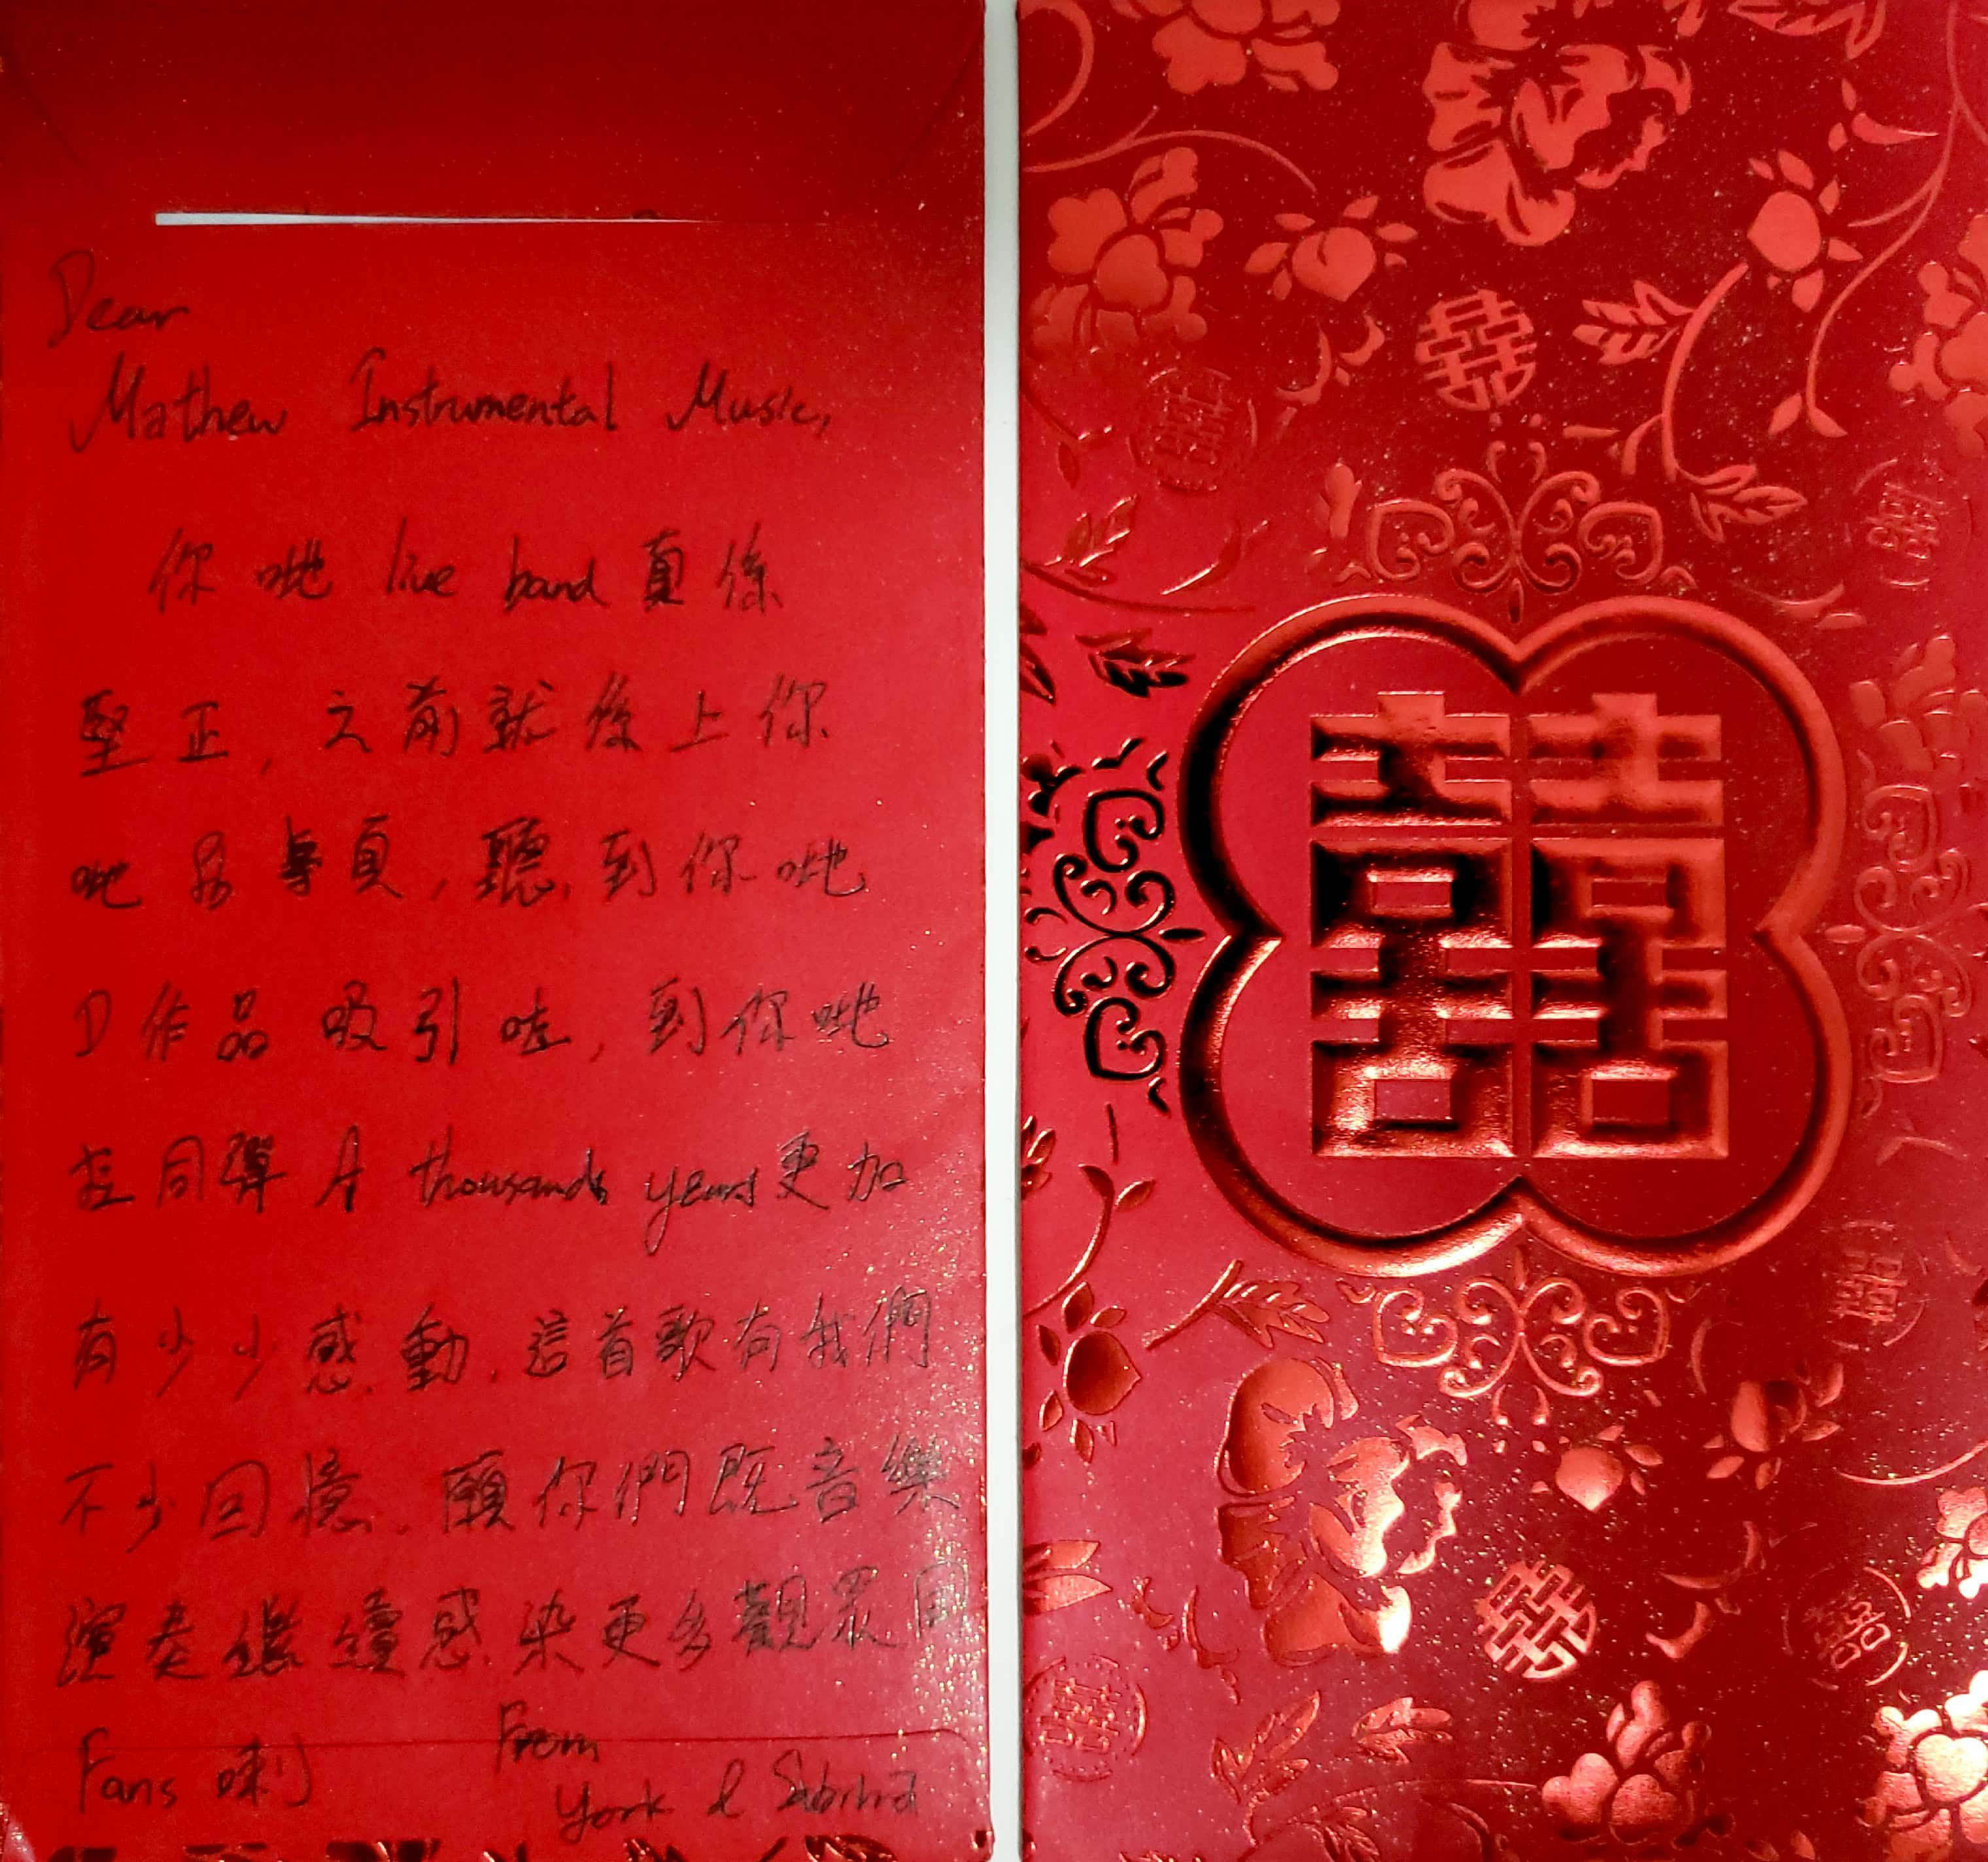 Dear
Mathew Instrumental Music,
你哋 live band 真係
堅正，之前就係上你
哋專頁，聽到你哋
D作品吸引咗，到你哋
同彈 A thousands years 更加
有少少感動，這首歌有我們
不少回憶，願你們既音樂
演奏繼續感染更多觀眾同
Fans 喇
From
York & Sabrina
囍